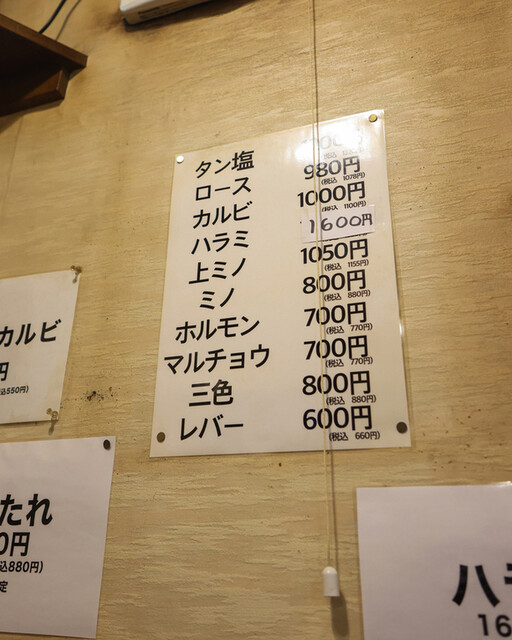 タン塩
ロース 980円
(税込 1078円)
カルビ 1000円
(税込 1100円)
ハラミ 1600円
上ミノ 1050円
(税込 1155円)
ミノ 800円
(税込 880円)
ホルモン 700円
(税込 770円)
マルチョウ 700円
(税込 770円)
三色 800円
(税込 880円)
レバー 600円
(税込 660円)
カルビ
円
込550円)
たれ
0円
込880円)
定
ハ
16